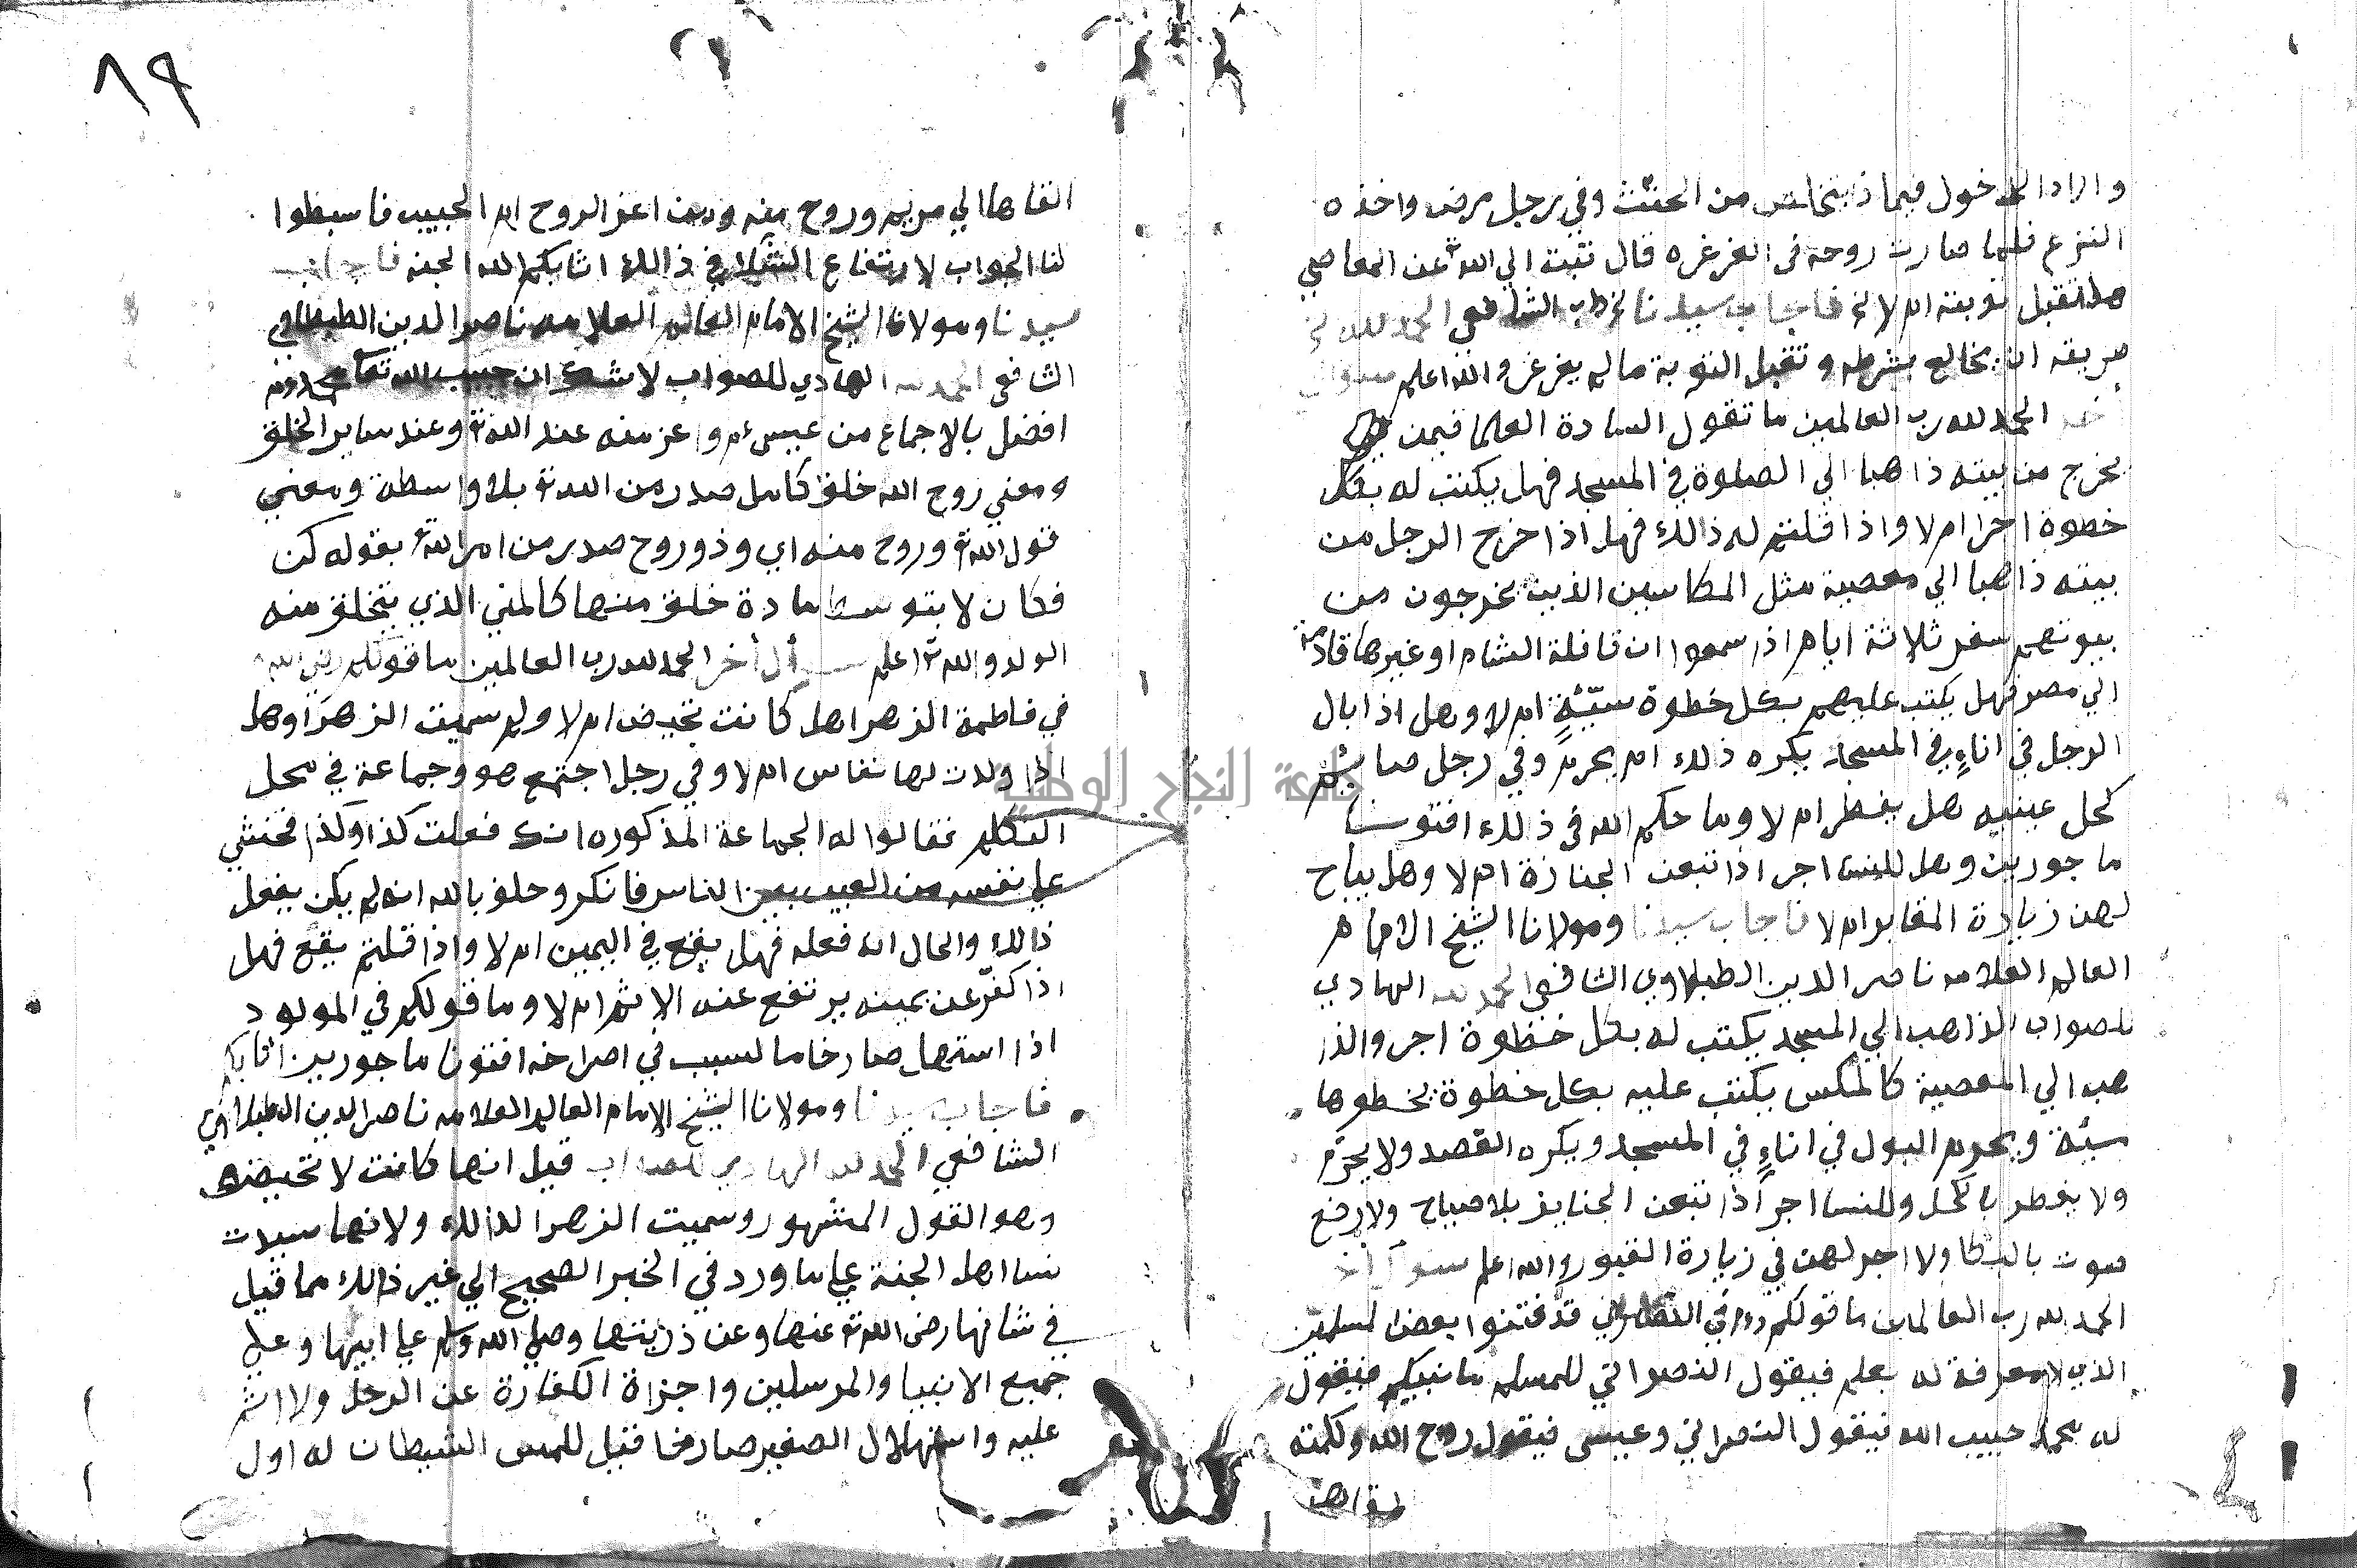 واراد الدخول فيماذا يتخلص من الحنث وفي رجل مرض واخذه
النزع فلما صارت روحه في الغرغره قال تبت الي الله تع عن المعاصي
هل تقبل توبته ام لا فاجاب سيدنا الشافعي الحمد لله
طريقه ان يخالع بشرطه وتقبل التوبة مالم يغرغر والله اعلم سوال
اخر الحمد لله رب العالمين ما تقول السادة العلما فيمن
يخرج من بيته ذاهبا الي الصلوة في المسجد فهل يكتب له بكل
خطوة اجرا ام لا واذا قلتم له ذالك فهل اذا خرج الرجل من
بيته ذاهبا الي معصية مثل المكاسين الذين يخرجون من
بيوتهم سفر ثلاثة ايام اذا سمعوا ان قافلة الشام او غيرها قادمة
الي مصر فهل يكتب عليهم بكل خطوة سيّئة ام لا وهل اذا بال
الرجل في اناءٍ في المسجد يكره ذلك ام يحرم وفي رجل صائم
كحل عينيه هل يفطر ام لا وما حكم الله في ذلك افتونا
ماجورين وهل للنسا اجر اذا تبعن الجنازة ام لا وهل يباح
لهن زيارة المقابر ام لا فاجاب سيدنا ومولانا الشيخ الامام
العالم العلامه ناصر الدين الطبلاوي الشافعي الحمد لله الهادي
للصواب الذاهب الي المسجد يكتب له بكل خطوة اجر والذا
هب الي المعصية كالمكس يكتب عليه بكل خطوة يخطوها
سيئة ويحرم البول في اناءٍ في المسجد ويكره الفصد ولا يحرّم
ولا يفطر بالكحل وللنسا اجراً اذا تبعن الجنايز بلا صياح ولا رفع
صوت بالبكا ولا اجر لهن في زيارة القبور والله اعلم سوال اخر
الحمد لله رب العالمين ما قولكم في النصراني قد فتنوا بعض المسلمين
الذي لا معرفة له بعلم فيقول النصراني للمسلم ما نبيكم فيقول
له محمد حبيب الله فيقول النصراني وعيسى فيقول روح الله وكلمته
القاها
٨٩
القاها الي مريم وروح منه ومن اعز الروح ام الحبيب فابسطوا
لنا الجواب لارتفاع الشك في ذالك اثابكم الله الجنه فاجاب
سيدنا ومولانا الشيخ الامام العالم العلامه ناصر الدين الطبلاوي
الشافعي الحمد لله الهادي للصواب لا شك ان حبيب الله تعا محمد
افضل بالاجماع من عيسى ءم واعز منه عند الله تع وعند ساير الخلق
ومعني روح الله خلق كامل صدر من الله تع بلا واسطة ومعني
قول الله تع وروح منه اي وذو روح صدر من امر الله تع بقوله كن
فكان لا بتوسط مادة خلق منها كالمني الذي يتخلق منه
الولد والله تع اعلم سؤال أخر الحمد لله رب العالمين ما قولكم رضي الله
في فاطمة الزهرا هل كانت تحيض ام لا ولم سميت الزهرا وهل
اذا ولدت لها نفاس ام لا وفي رجل اجتمع هو وجماعة في محل
التكلم فقالوا له الجماعة المذكوره انك فعلت كذا وكذا فخشي
علي نفسه من العيب بين الناس فانكر وحلف بالله انه لم يكن يفعل
ذالك والحال انه فعله فهل يقع في اليمين ام لا واذا قلتم يقع فهل
اذا كفّر عن يمينه يرتفع عنه الاثم ام لا وما قولكم في المولود
اذا استهل صارخا ما السبب في اصراخه افتونا ماجورين اثابكم
فاجاب سيدنا ومولانا الشيخ الامام العالم العلامه ناصر الدين الطبلاوي
الشافعي الحمد لله الهادي للصواب قيل انها كانت لا تحيض
وهو القول المشهور وسميت الزهرا لذالك ولانها سيدت
نسا اهل الجنة علي ما ورد في الخبر الصحيح الي غير ذالك مما قيل
في شانها رضي الله تع عنها وعن ذريتها وصلي الله وسلم علي ابيها وعلي
جميع الانبيا والمرسلين واجزاة الكفارة عن الرجل ولا اثم
عليه واستهلال الصغير صارخا فقيل للمس الشيطان له اول
جامعة النجاح الوطنية